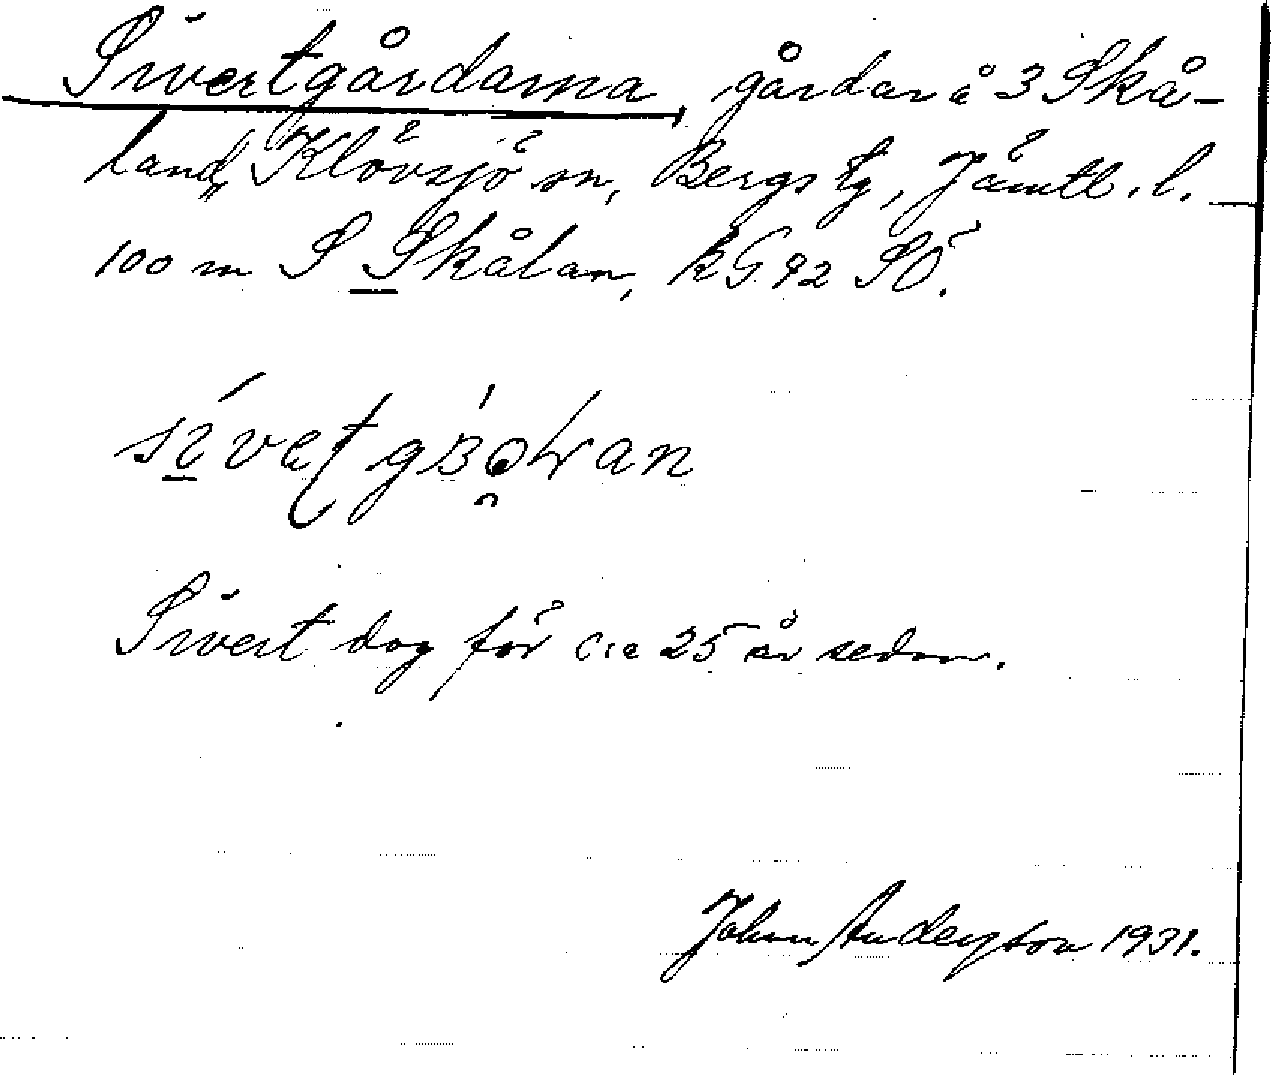 Sivertgårdarna, gårdar å 3 Skå-
land, Klövsjö sn, Bergs tg, Jämtl. l.
100 m S Skålan, kG 92 SO.
Sivert dog för c:a 25 år sedan.
John Anderson 1931.